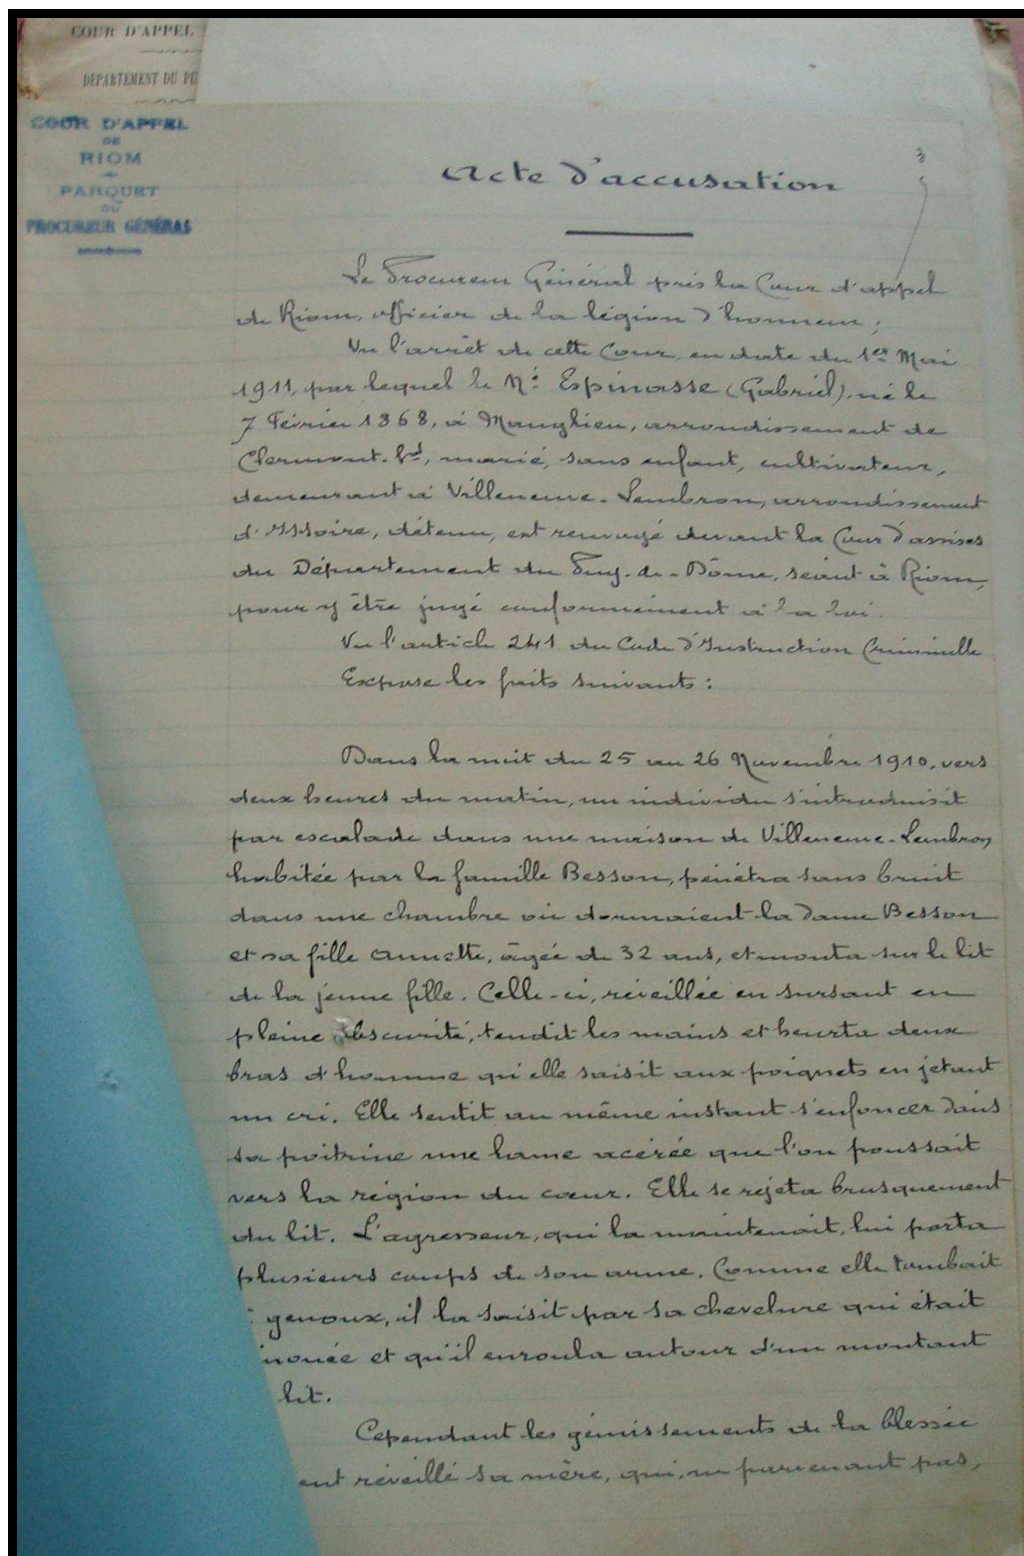 COUR D'APPEL
DÉPARTEMENT DU PU
COUR D'APPEL
DE
RIOM
PARQUET
DU
PROCUREUR GÉNÉRAL
Acte d'accusation
Le Procureur Général près la Cour d'appel
de Riom, officier de la légion d'honneur ;
Vu l'arrêt de cette Cour, en date du 1er Mai
1911, par lequel le Né Espinasse (Gabriel), né le
7 Février 1868, à Manglieu, arrondissement de
Clermont-Fd, marié, sans enfant, cultivateur,
demeurant à Villeneuve-Lembron, arrondissement
d'Issoire, détenu, est renvoyé devant la Cour d'assises
du Département du Puy-de-Dôme, séant à Riom,
pour y être jugé conformément à la loi.
Vu l'article 241 du Code d'Instruction Criminelle
Expose les faits suivants :
Dans la nuit du 25 au 26 Novembre 1910, vers
deux heures du matin, un individu s'introduisit
par escalade dans une maison de Villeneuve-Lembron
habitée par la famille Besson, pénétra sans bruit
dans une chambre où dormaient la dame Besson
et sa fille Annette, âgée de 32 ans, et monta sur le lit
de la jeune fille. Celle-ci, réveillée en sursaut en
pleine obscurité, tendit les mains et heurta deux
bras d'homme qu'elle saisit aux poignets en jetant
un cri. Elle sentit au même instant s'enfoncer dans
sa poitrine une lame acérée que l'on poussait
vers la région du cœur. Elle se rejeta brusquement
du lit. L'agresseur, qui la maintenait, lui porta
plusieurs coups de son arme. Comme elle tombait
genoux, il la saisit par sa chevelure qui était
nouée et qu'il enroula autour d'un montant
lit.
Cependant les gémissements de la blessée
ent réveillé sa mère, qui, ne parvenant pas,